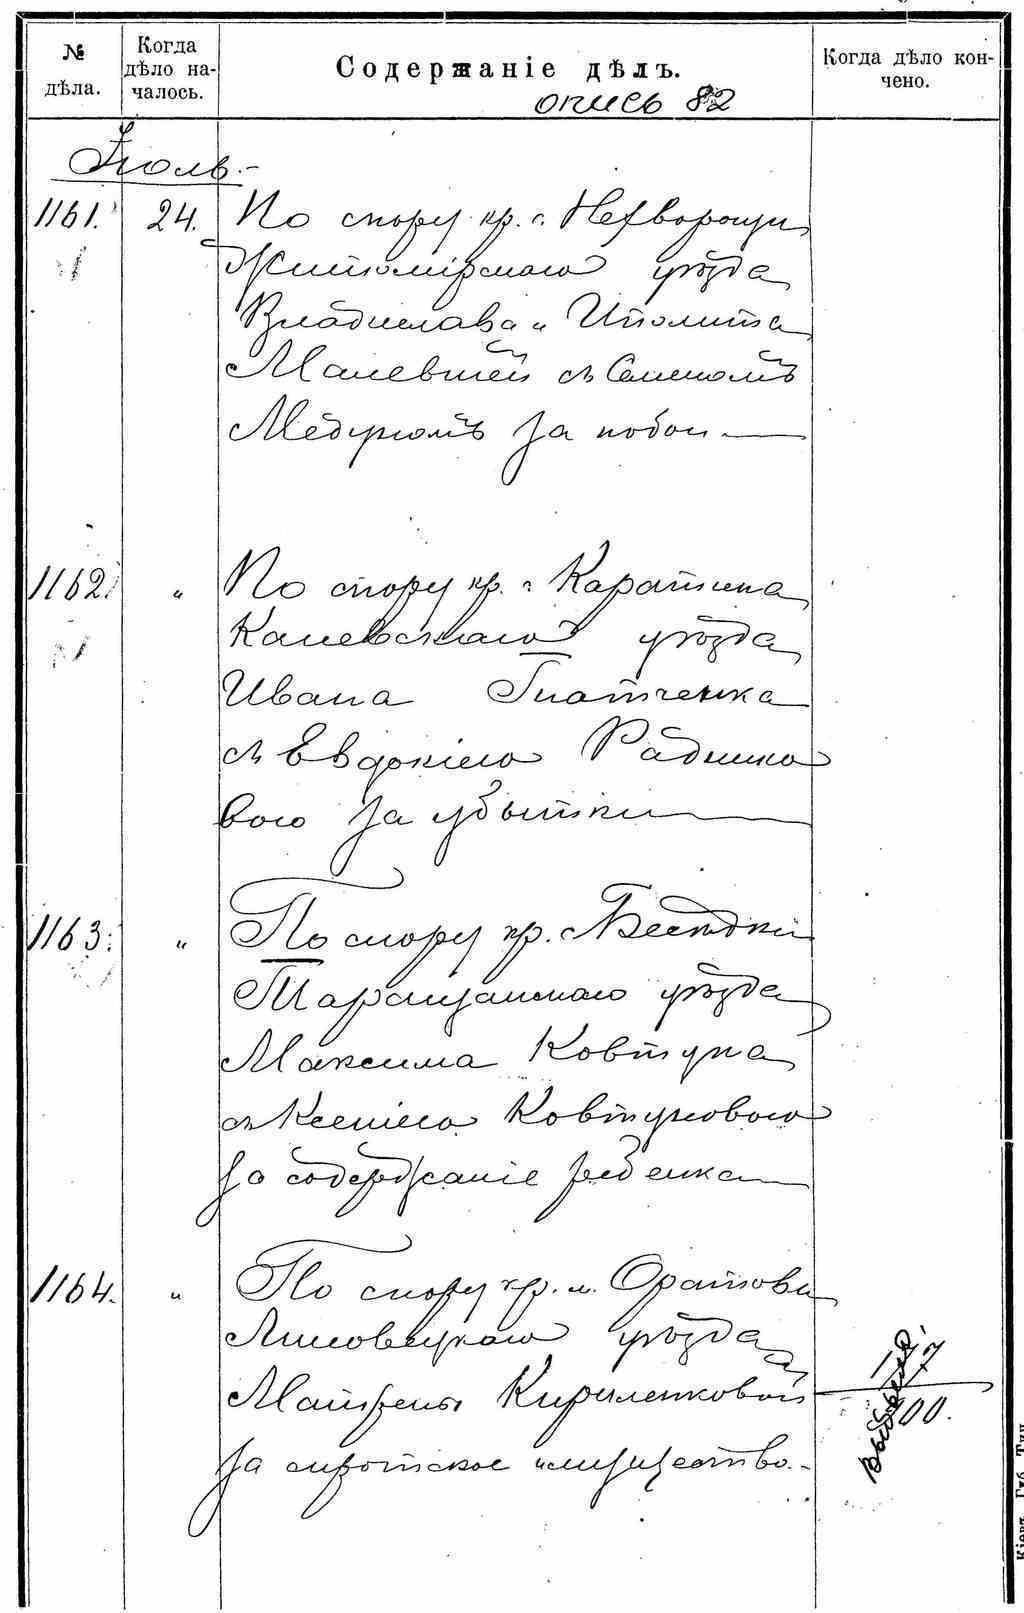 № дѣла.
Когда дѣло началось.
Содержаніе дѣлъ.
Когда дѣло кончено.
опись 82
Іюль.-
1161. 24. По спору кр. с. Нехворощи
Житомірскаго уѣзда
Владислава и Иполита
Малевшей съ Семеномъ
Медуномъ за побои
1162. " По спору кр. с. Каратина
Каневскаго уѣзда
Ивана Гнатченка
съ Евдокіею Радченко
вою за убытки
1163. " По спору кр. с. Бесѣдки
Таращанскаго уѣзда
Максима Ковтуна
съ Ксеніею Ковтуновою
за содержаніе ребенка
1164. " По спору кр. м. Оратова
Липовецкаго уѣзда
Матрены Кириленковой
за сиротское имущество.-
17/7 00.
Кіевъ. Губ. Тип.